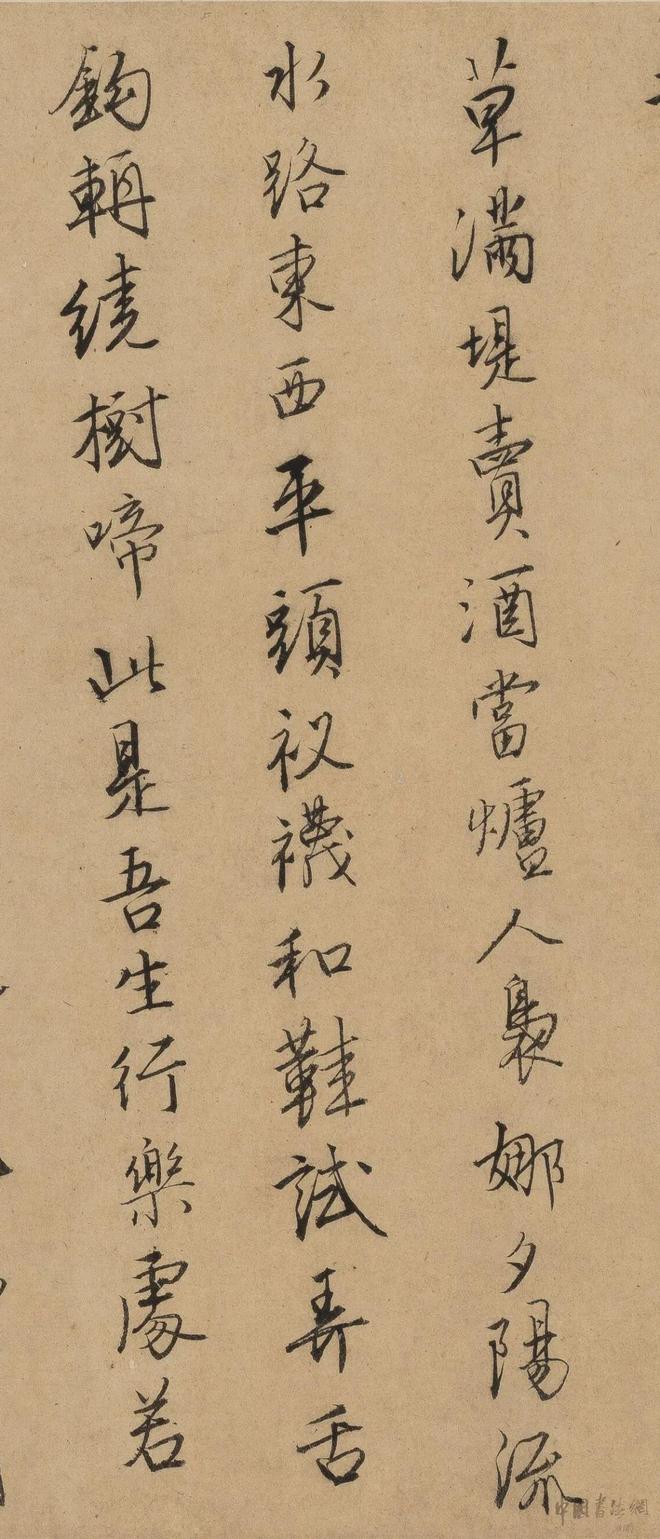 草滿堤賣酒當爐人裊娜夕陽流
水路東西平頭衩襪和鞋試弄舌
鉤輈繞樹啼此是吾生行樂處若
中國書法網